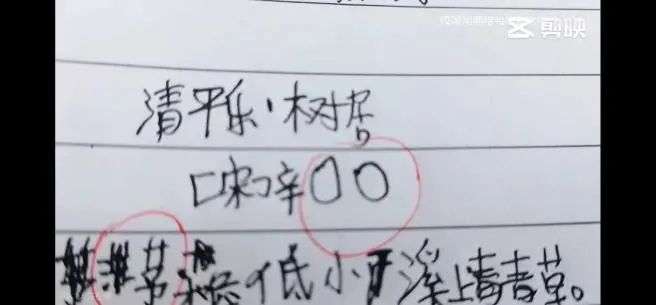 剪映
清平乐·树居
[宋]辛〇〇
茅檐低小 溪上青青草。